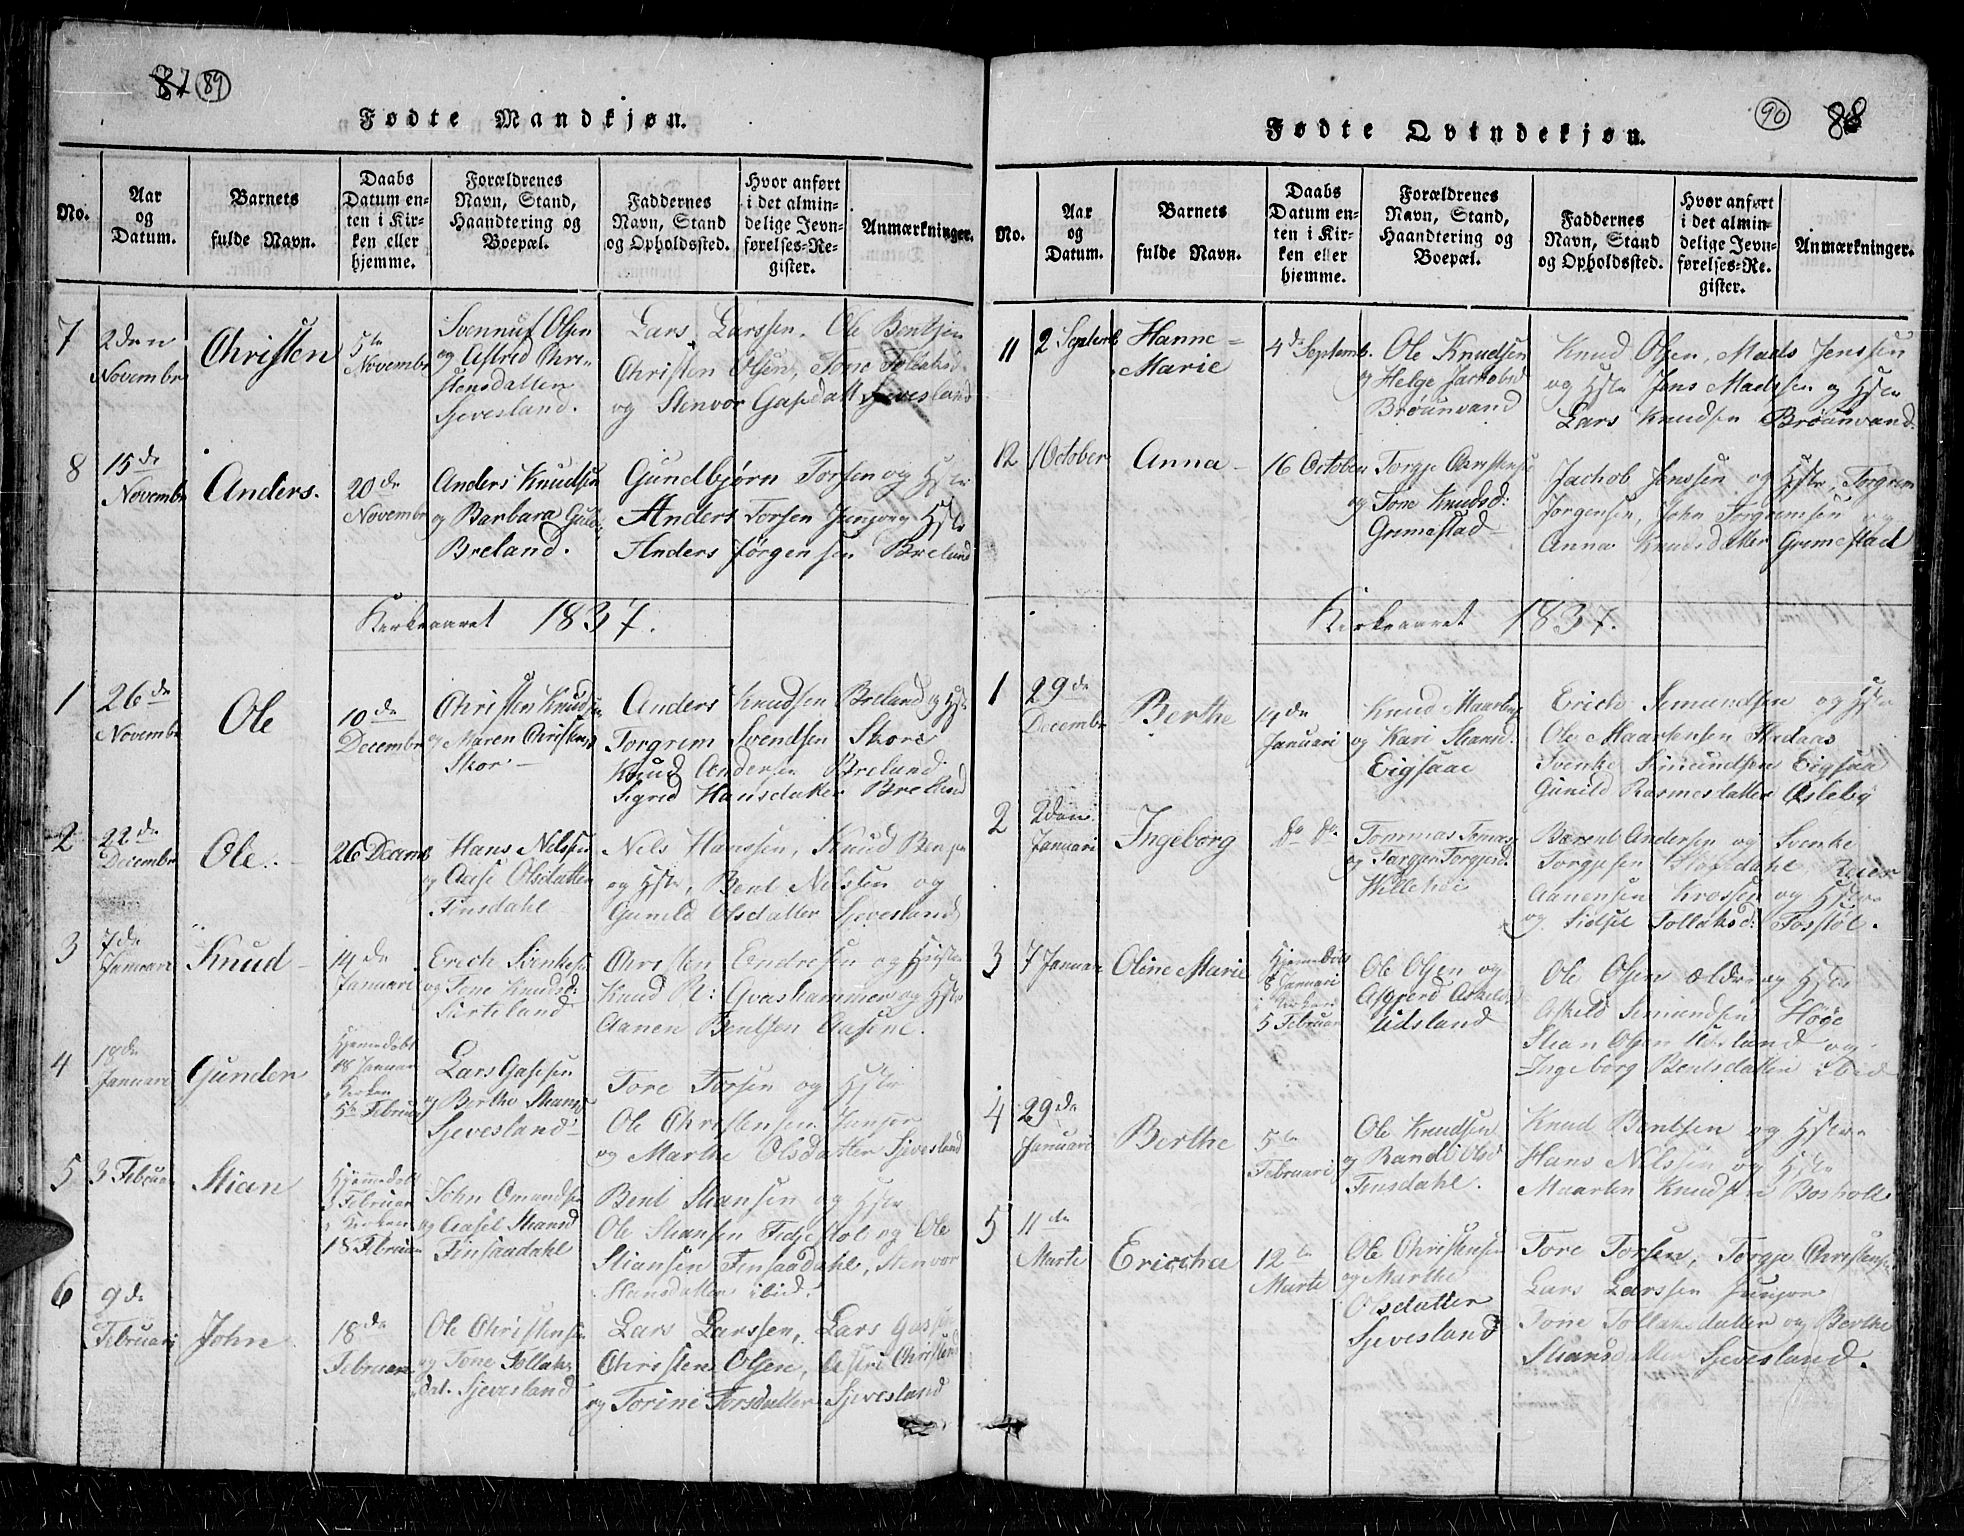 87 89
Fødte Mandkjøn.
No.
Aar og Datum.
Barnets fulde Navn.
Daabs Datum enten i Kirken eller hjemme.
Forældrenes Navn, Stand, Haandtering og Boepæl.
Faddernes Navn, Stand og Opholdssted.
Hvor anført i det almindelige Jevnførelses-Register.
Anmærkninger.
7
2den
Novembr
Christen
5te
Novembr
Svennuf Olsen
og Astred Chri-
stensdatter
Sjevesland.
Lars Larssen, Ole Bentsen
Christen Olsen, Tone Tollaksd.
og Stenvor Gapsdatt Sjevesland
8
15de
Novembr
Anders.
20de
Novembr
Anders Knudsen
og Barbara Gund:
Breland.
Gundbjørn Torsen og Hstr
Anders Torsen Junjor og Hstr
Anders Jørgensen Breland
Kirkeaaret 1837.
1
26de
Novembr
Ole
10de
Decembr
Christen Knudsen
og Maren Christens
Skor
Anders Knudsen Breland og Hstr
Torgrem Svendsen Skore
Knud Andersen Breland
Sigred Hansdatter Breland
2
22de
Decembr
Ole.
26 Decemb
Hans Nilsen
og Aase Olsdatter
Finsdahl
Nels Hanssen, Knud Bensen
og Hstr, Bent Nilsen og
Gunild Olsdatter Sjevesland
3
7de
Januari
Knud
14de
Januari
Erich Svenkesen
og Tone Knudsd:
Sirteland
Christen Endresen og Hustr
Knud R: Gvashammer og Hstr
Aanen Bentsen Aasene.
4
18de
Januari
Gunder
Hjemedøbt
18 Januar
i Kirken
5te Februar
Lars Gasesen
og Berthe Stiansd
Sjevesland
Tore Torsen og Hstr
Ole Christensen Junjor
og Marthe Olsdatter Sjevesland
5
3 Februar
Stian
Hjemmedøbt
3 Februar
i Kirken
18 Februar
John Omundsen
og Aasel Stiansd
Finsaadahl
Bent Stiansen og Hstr
Ole Stiansen Fidjestøl og Ole
Stiansen Finsaadahl, Stenvor
Hansdatter ibid.
6
9de
Februari
John
18de
Februari
Ole Christensen
og Tone Tollak-
dat. Sjevesland
Lars Larssen, Lars Gassen
Christen Olsen, Astri Christensd
og Torine Torsdatter Sjevesland
90 88
Fødte Qvindekjøn.
No.
Aar og Datum.
Barnets fulde Navn.
Daabs Datum enten i Kirken eller hjemme.
Forældrenes Navn, Stand, Haandtering og Boepæl.
Faddernes Navn, Stand og Opholdssted.
Hvor anført i det almindelige Jevnførelses-Register.
Anmærkninger.
11
2 Septemb
Hanne=
Marie
4de Septemb.
Ole Knudsen
og Helge Jachobsd
Brøunvand
Knud Olsen, Mads Jenssen
og Hstr Jens Madssen og Hstr
Lars Knudsen Brøunvand
12
1 October
Anna
16 October
Torgje Christensen
og Tone Knudsd:
Gremestad
Jachob Jenssen og Hstr, Torgrem
Jørgensen, John Torgremsen og
Anna Knudsdatter Gremestad
Kirkeaaret 1837.
1
29de
Decembr
Berthe
14de
Januari
Knud Maartens
og Kari Stiansd.
Eigsaae
Erich Simundsen og Hstr
Ole Maartensen Hadaas
Svenke Simundsen Eigsaa
Gunild Rasmesdatter Osleby
2
2den
Januari
Ingeborg
do do
Tommas Tomas
og Targjer Torgjusd.
Hillehei
Bærent Andersen og Svenke
Torgjusen Stofsdahl, Reier
Aanensen Krossen og Hstr
og Sidsel Tollaksd: Fosstøl.
3
7 Januari
Oline Marie
Hjemmedøbt
8 Januari
i Kirken
5 Februar
Ole Olsen og
Asgjerd Askelds
Udsland
Ole Olsen ældre og Hstr
Askeld Simundsen Høge
Stian Olsen Udsland og
Ingeborg Bentsdatter ibid
4
29de
Januari
Berthe
5te
Februari
Ole Knudsen
og Randi Olsd
Finsdahl.
Knud Bentsen og Hstr
Hans Nilssen og Hstr
Maarten Knudsen Bosholt
5
11de
Marti
Ericcha
12te
Marti
Ole Christensen
og Marthe
Olsdatter
Sjevesland
Tore Torsen, Torgje Christensen
Lars Larssen Junjor
Tone Tollaksdatter og Berthe
Stiansdatter Sjevesland.